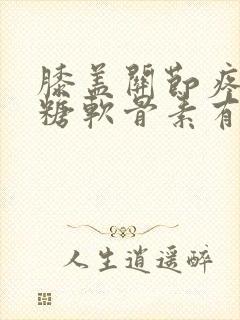 膝盖關節疼
糖軟骨素有
人生逍遥醉